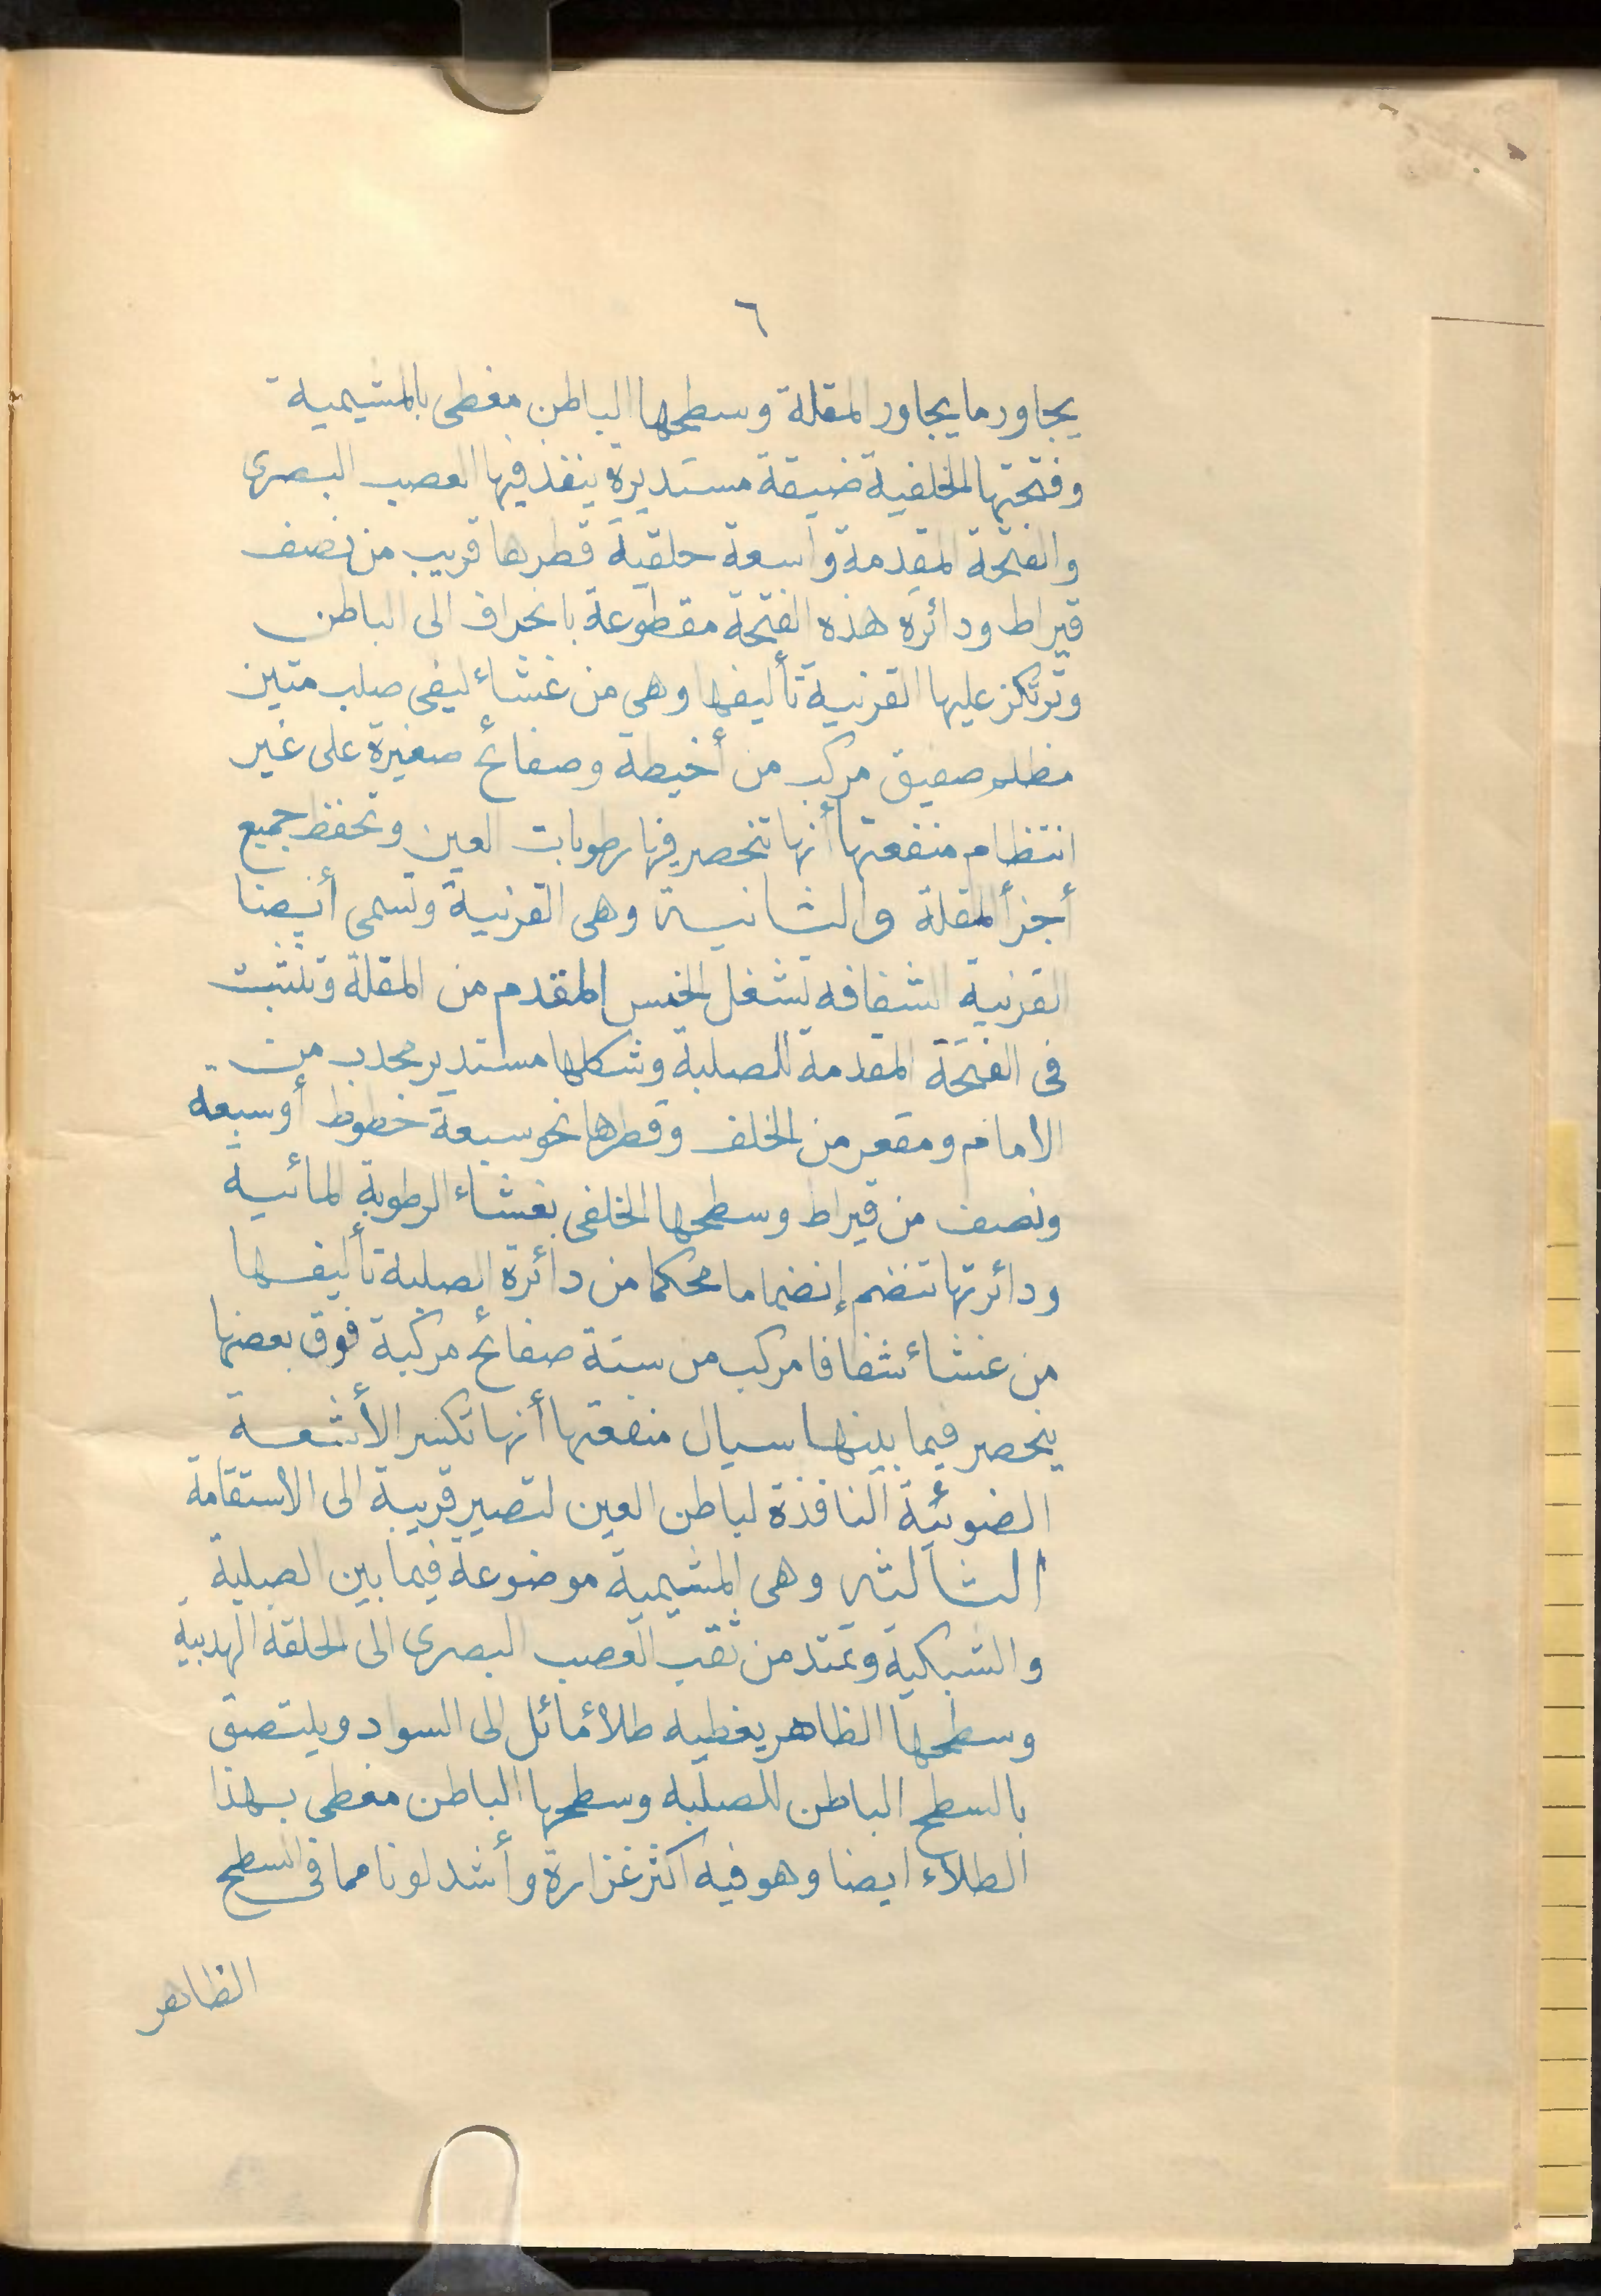 ٦
يجاور ما يجاور المقلة وسطحها الباطن مغطى بالمشيمية
وفتحتها الخلفية ضيقة مستديرة ينفذ فيها العصب البصرى
والفتحة المقدمة واسعة حلقية قطرها قريب من نصف
قيراط ودائرة هذه الفتحة مقطوعة بانحراف الى الباطن
وترتكز عليها القرنية تأليفها وهى من غشاء ليفى صلب متين
مظلم صفيق مركب من أخيطة وصفائح صغيرة على غير
انتظام منفعتها أنها تنحصر فيها رطوبات العين وتحفظ جميع
أجزأ المقلة والثانية وهى القرنية وتسمى أيضا
القرنية الشفافه تشغل الخمس المقدم من المقلة وتثبت
فى الفتحة المقدمة للصلبة وشكلها مستدير محدب من
الامام ومقعر من الخلف وقطرها نحو سبعة خطوط أوسبعة
ونصف من قيراط وسطحها الخلفى بغشاء الرطوبة المائية
ودائرتها تنضم إنضماما محكما من دائرة الصلبة تأليفها
من غشاء شفافا مركب من ستة صفائح مركبة فوق بعضها
ينحصر فيما بينها سيال منفعتها أنها تكسر الأشعة
الضوئية النافذة لباطن العين لتصير قريبة الى الاستقامة
الثالثه وهى المشيمية موضوعة فيما بين الصلبة
والشبكية وتمتد من ثقب العصب البصرى الى الحلقة الهدبية
وسطحها الظاهر يغطيه طلاء مائل الى السواد ويلتصق
بالسطح الباطن للصلبة وسطحها الباطن مغطى بهذا
الطلاء ايضا وهو فيه اكثر غزارة وأشد لونا مما فى السطح
الظاهر